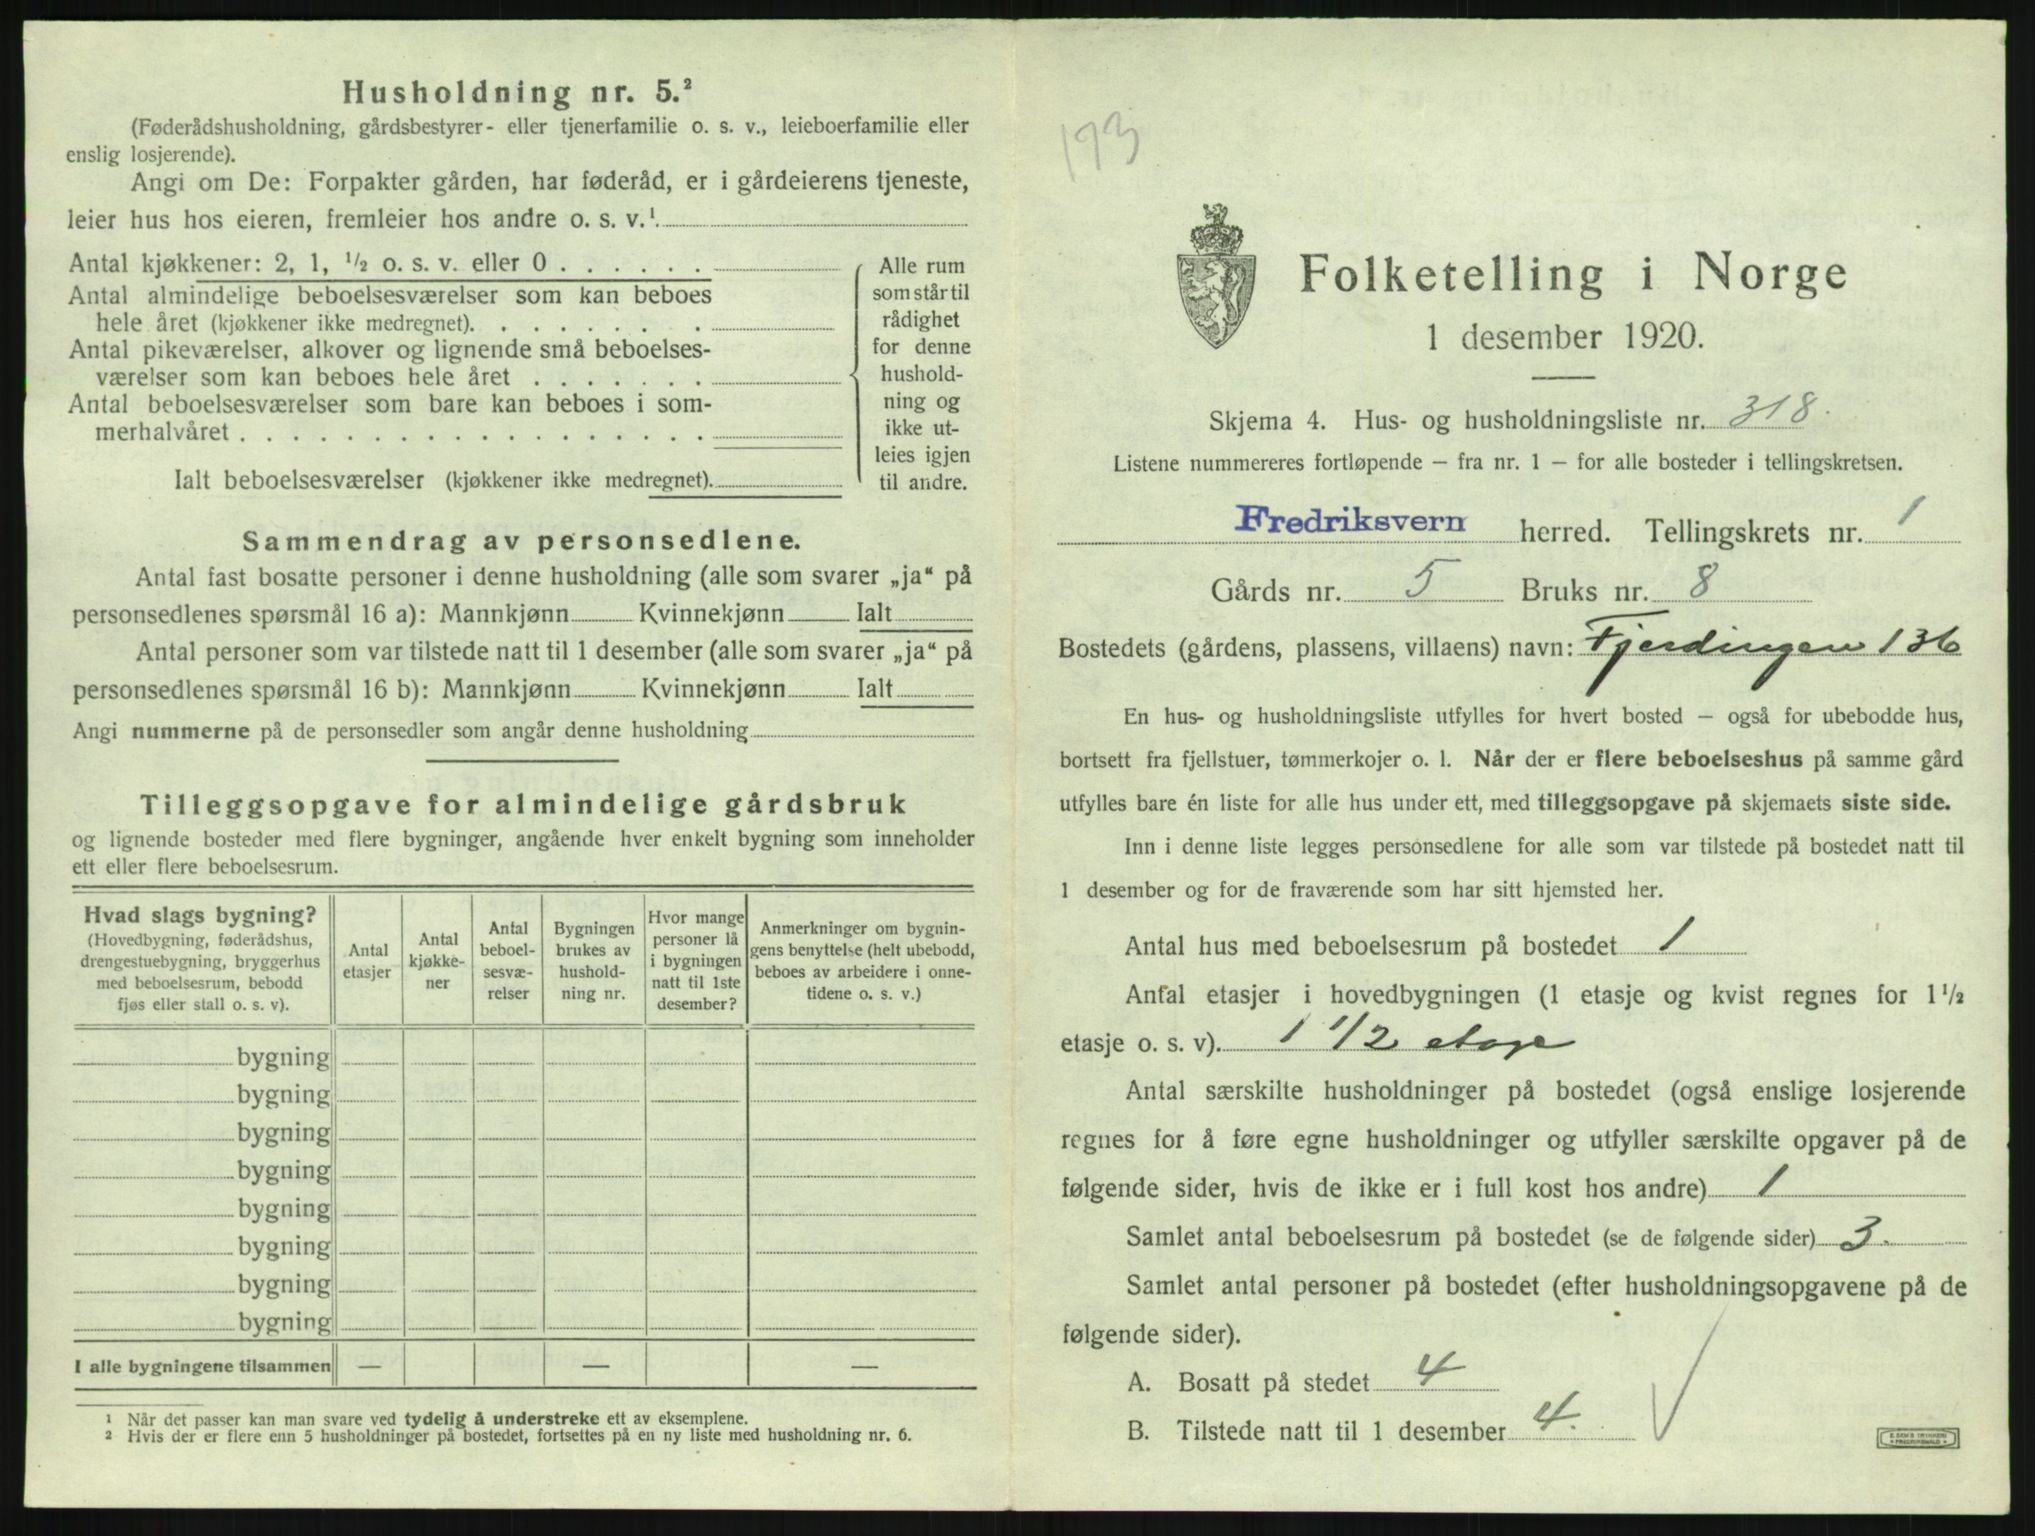 Husholdning nr. 5.²
(Føderådshusholdning, gårdsbestyrer- eller tjenerfamilie o. s. v., leieboerfamilie eller
enslig losjerende).
Angi om De: Forpakter gården, har føderåd, er i gårdeierens tjeneste,
leier hus hos eieren, fremleier hos andre o. s. v.¹
Antal kjøkkener: 2, 1, ½ o. s. v. eller 0 . . . . . .
Antal almindelige beboelsesværelser som kan beboes
hele året (kjøkkener ikke medregnet). . . . . . . .
Antal pikeværelser, alkover og lignende små beboelses-
værelser som kan beboes hele året . . . . . . .
Antal beboelsesværelser som bare kan beboes i som-
merhalvåret . . . . . . . . . . . . . . . . . .
Ialt beboelsesværelser (kjøkkener ikke medregnet).
Alle rum
som står til
rådighet
for denne
hushold-
ning og
ikke ut-
leies igjen
til andre.
Sammendrag av personsedlene.
Antal fast bosatte personer i denne husholdning (alle som svarer „ja“ på
personsedlenes spørsmål 16 a): Mannkjønn Kvinnekjønn Ialt
Antal personer som var tilstede natt til 1 desember (alle som svarer „ja“ på
personsedlenes spørsmål 16 b): Mannkjønn Kvinnekjønn Ialt
Angi nummerne på de personsedler som angår denne husholdning
Tilleggsopgave for almindelige gårdsbruk
og lignende bosteder med flere bygninger, angående hver enkelt bygning som inneholder
ett eller flere beboelsesrum.
Hvad slags bygning?
(Hovedbygning, føderådshus,
drengestuebygning, bryggerhus
med beboelsesrum, bebodd
fjøs eller stall o. s. v).
Antal
etasjer
Antal
kjøkke-
ner
Antal
beboel-
sesvæ-
relser
Bygningen
brukes av
hushold-
ning nr.
Hvor mange
personer lå
i bygningen
natt til 1ste
desember?
Anmerkninger om bygnin-
gens benyttelse (helt ubebodd,
beboes av arbeidere i onne-
tidene o. s. v.)
bygning
bygning
bygning
bygning
bygning
bygning
bygning
bygning
I alle bygningene tilsammen — — —
¹ Når det passer kan man svare ved tydelig å understreke ett av eksemplene.
² Hvis der er flere enn 5 husholdninger på bostedet, fortsettes på en ny liste med husholdning nr. 6.
193
Folketelling i Norge
1 desember 1920.
Skjema 4. Hus- og husholdningsliste nr. 318.
Listene nummereres fortløpende — fra nr. 1 — for alle bosteder i tellingskretsen.
Fredriksvern herred. Tellingskrets nr. 1
Gårds nr. 5 Bruks nr. 8
Bostedets (gårdens, plassens, villaens) navn: Fjerdingen 136
En hus- og husholdningsliste utfylles for hvert bosted — også for ubebodde hus,
bortsett fra fjellstuer, tømmerkojer o. l. Når der er flere beboelseshus på samme gård
utfylles bare én liste for alle hus under ett, med tilleggsopgave på skjemaets siste side.
Inn i denne liste legges personsedlene for alle som var tilstede på bostedet natt til
1 desember og for de fraværende som har sitt hjemsted her.
Antal hus med beboelsesrum på bostedet 1
Antal etasjer i hovedbygningen (1 etasje og kvist regnes for 1½
etasje o. s. v). 1 1/2 etage
Antal særskilte husholdninger på bostedet (også enslige losjerende
regnes for å føre egne husholdninger og utfyller særskilte opgaver på de
følgende sider, hvis de ikke er i full kost hos andre) 1
Samlet antal beboelsesrum på bostedet (se de følgende sider) 3.
Samlet antal personer på bostedet (efter husholdningsopgavene på de
følgende sider).
A. Bosatt på stedet 4
B. Tilstede natt til 1 desember 4.